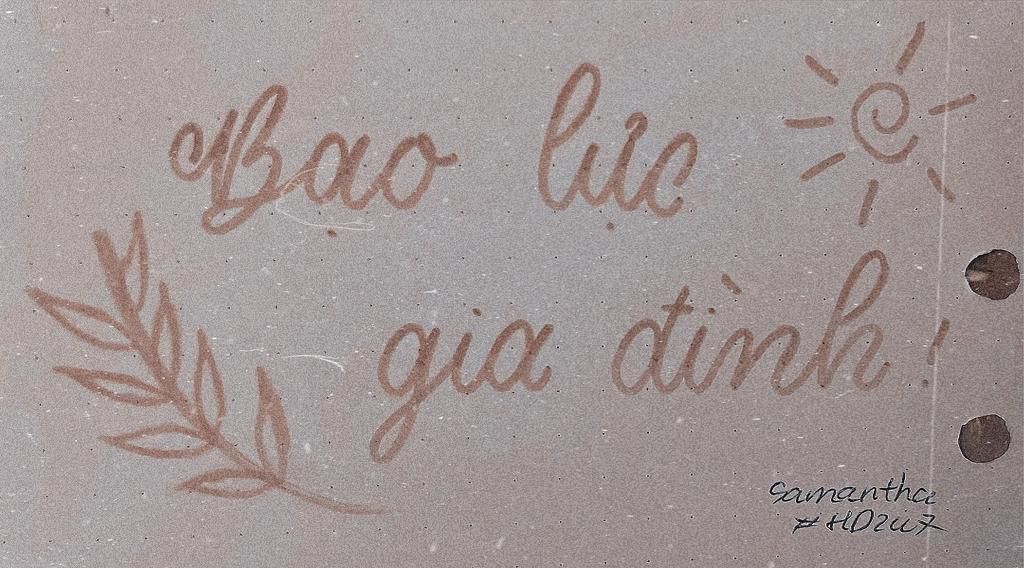 Bạo lực
gia đình!
Samantha
#HD247